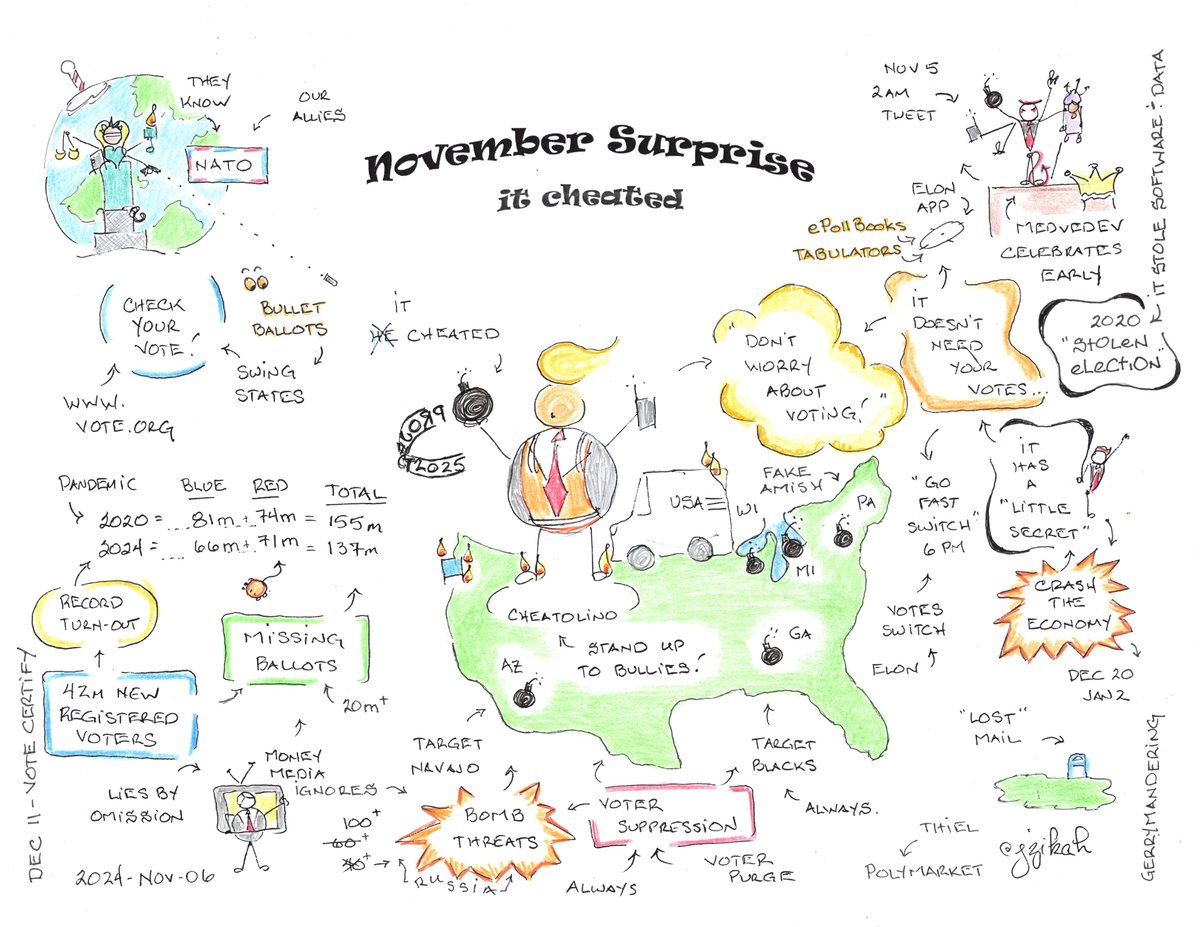 November Surprise
it cheated
THEY
KNOW
OUR
ALLIES
NATO
CHECK
YOUR
VOTE!
WWW.
VOTE.ORG
BULLET
BALLOTS
SWING
STATES
IT
HE CHEATED
PROJ
2025
NOV 5
2AM
TWEET
ELON
APP
ePollBooks
TABULATORS
MEDVEDEV
CELEBRATES
EARLY
IT STOLE SOFTWARE + DATA
2020
"STOLEN
ELECTION"
"DON'T
WORRY
ABOUT
VOTING!"
IT
DOESN'T
NEED
YOUR
VOTES...
IT
HAS
A
"LITTLE
SECRET"
"GO
FAST
SWITCH"
6 PM
VOTES
SWITCH
ELON
CRASH
THE
ECONOMY
DEC 20
JAN 2
PANDEMIC BLUE RED TOTAL
2020 = ... 81m + 74m = 155m
2024 = ... 66m + 71m = 137m
RECORD
TURN-OUT
MISSING
BALLOTS
20m+
42M NEW
REGISTERED
VOTERS
LIES BY
OMISSION
MONEY
MEDIA
IGNORES
DEC 11 - VOTE CERTIFY
2024-NOV-06
USA
FAKE
AMISH
WI
PA
MI
GA
AZ
CHEATOLINO
STAND UP
TO BULLIES!
TARGET
NAVAJO
TARGET
BLACKS
ALWAYS.
BOMB
THREATS
100+
60+
RUSSIA
VOTER
SUPPRESSION
ALWAYS
VOTER
PURGE
"LOST"
MAIL
THIEL
POLYMARKET
@jzikah
GERRYMANDERING